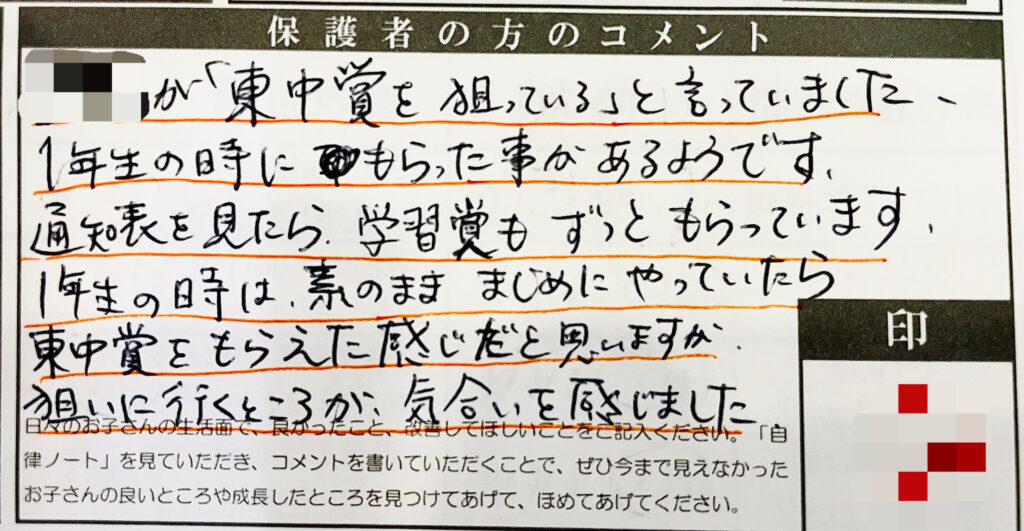 保護者の方のコメント
が「東中賞を狙っている」と言っていました、
1年生の時にもらった事があるようです、
通知表を見たら、学習賞もずっともらっています、
1年生の時は、素のまままじめにやっていたら
東中賞をもらえた感じだと思いますが、
狙いに行くところが、気合いを感じました
印
日々のお子さんの生活面で、良かったこと、改善してほしいことをご記入ください。「自
律ノート」を見ていただき、コメントを書いていただくことで、ぜひ今まで見えなかった
お子さんの良いところや成長したところを見つけてあげて、ほめてあげてください。